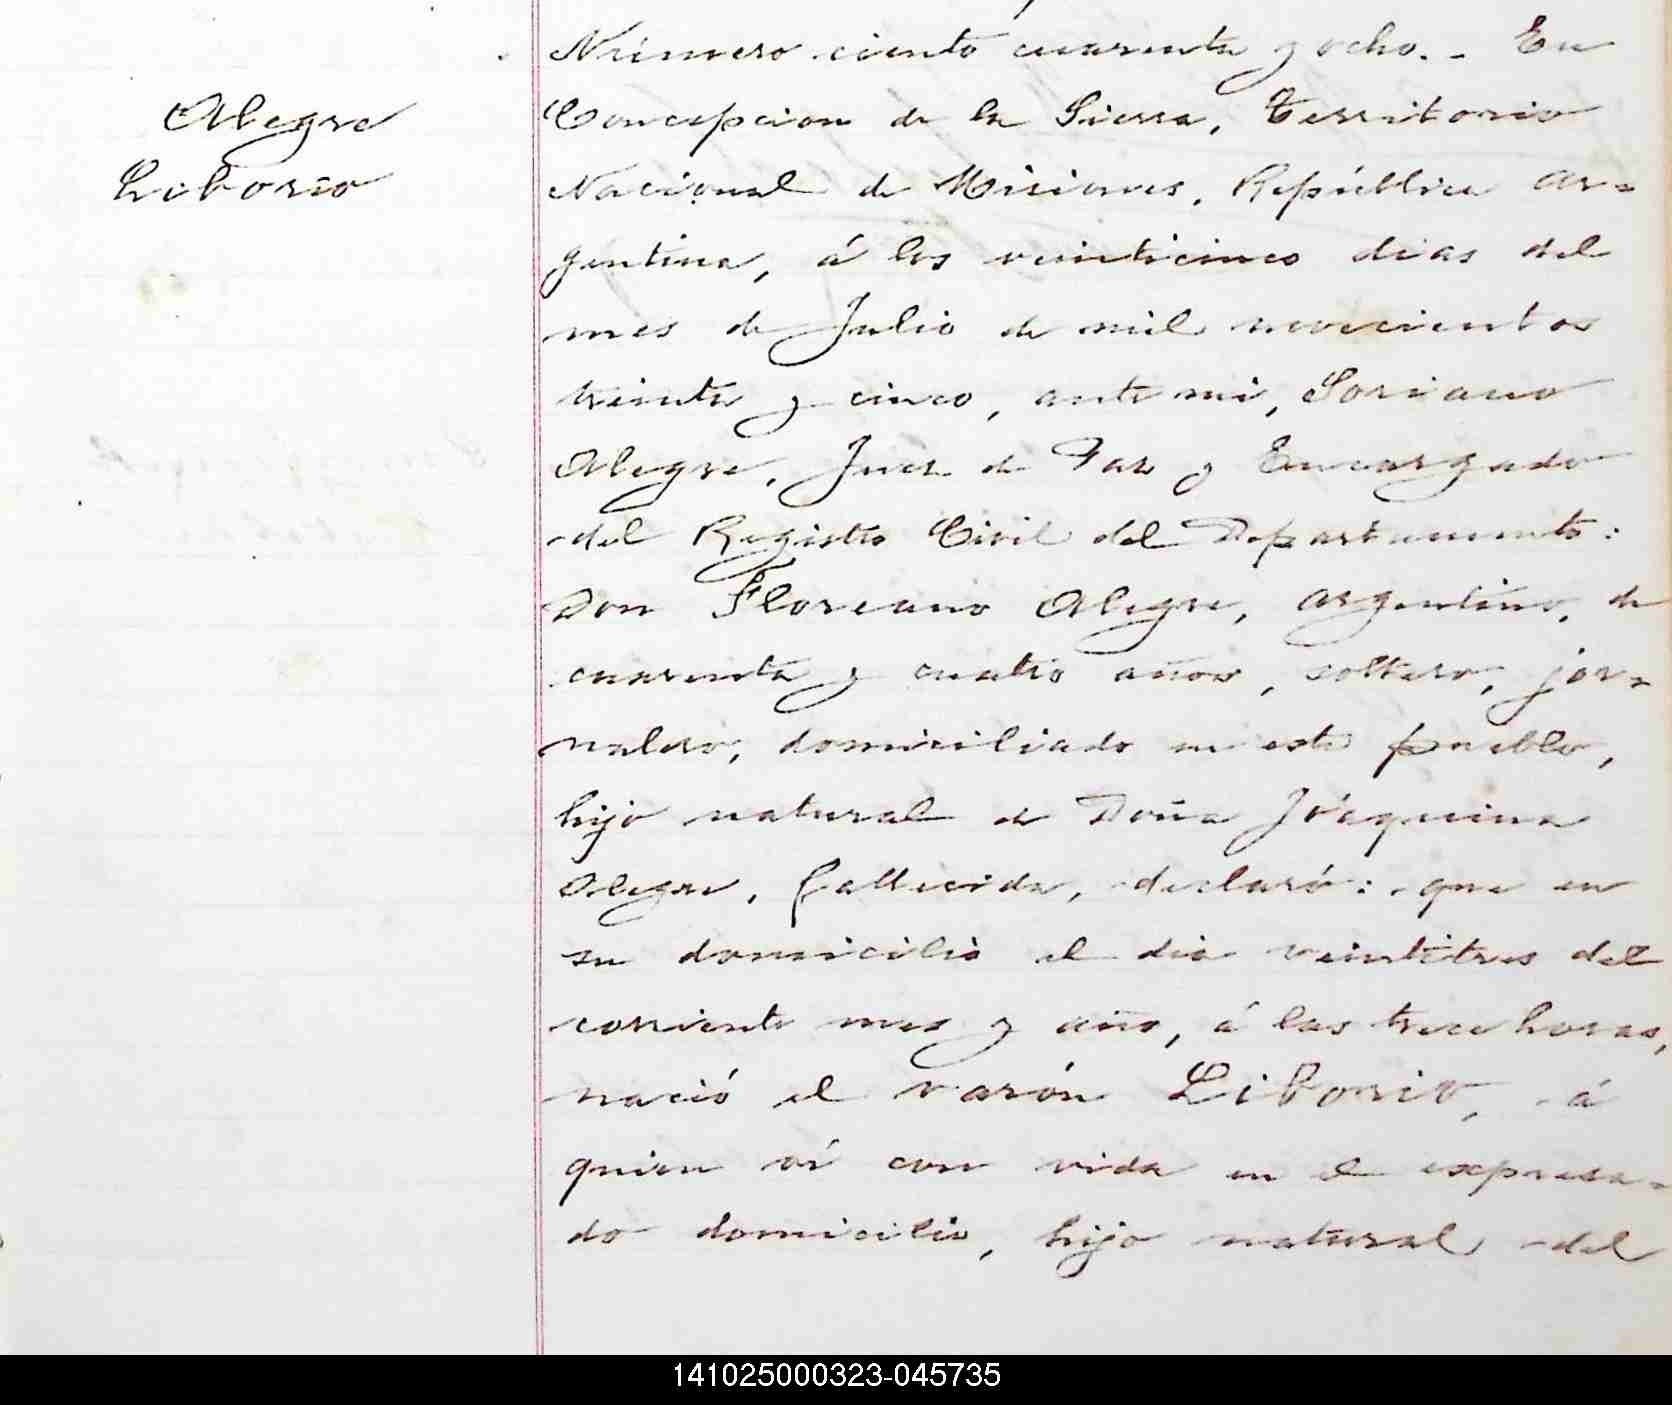 Alegre
Liborio
Número ciento cuarenta y ocho.- En
Concepcion de la Sierra, Territorio
Nacional de Misiones, República Ar-
gentina, á los veinticinco dias del
mes de Julio de mil novecientos
treinta y cinco, ante mi, Soriano
Alegre, Juez de Paz y Encargado
del Registro Civil del Departamento:
Don Floreano Alegre, argentino, de
cuarenta y cuatro años, soltero, jor-
nalero, domiciliado en este pueblo,
hijo natural de Doña Joaquina
Alegre, fallecida, declaró: que en
su domicilio el dia veintitres del
corriente mes y año, á las trece horas,
nació el varón Liborio, á
quien ví con vida en el expresa-
do domicilio, hijo natural del
141025000323-045735